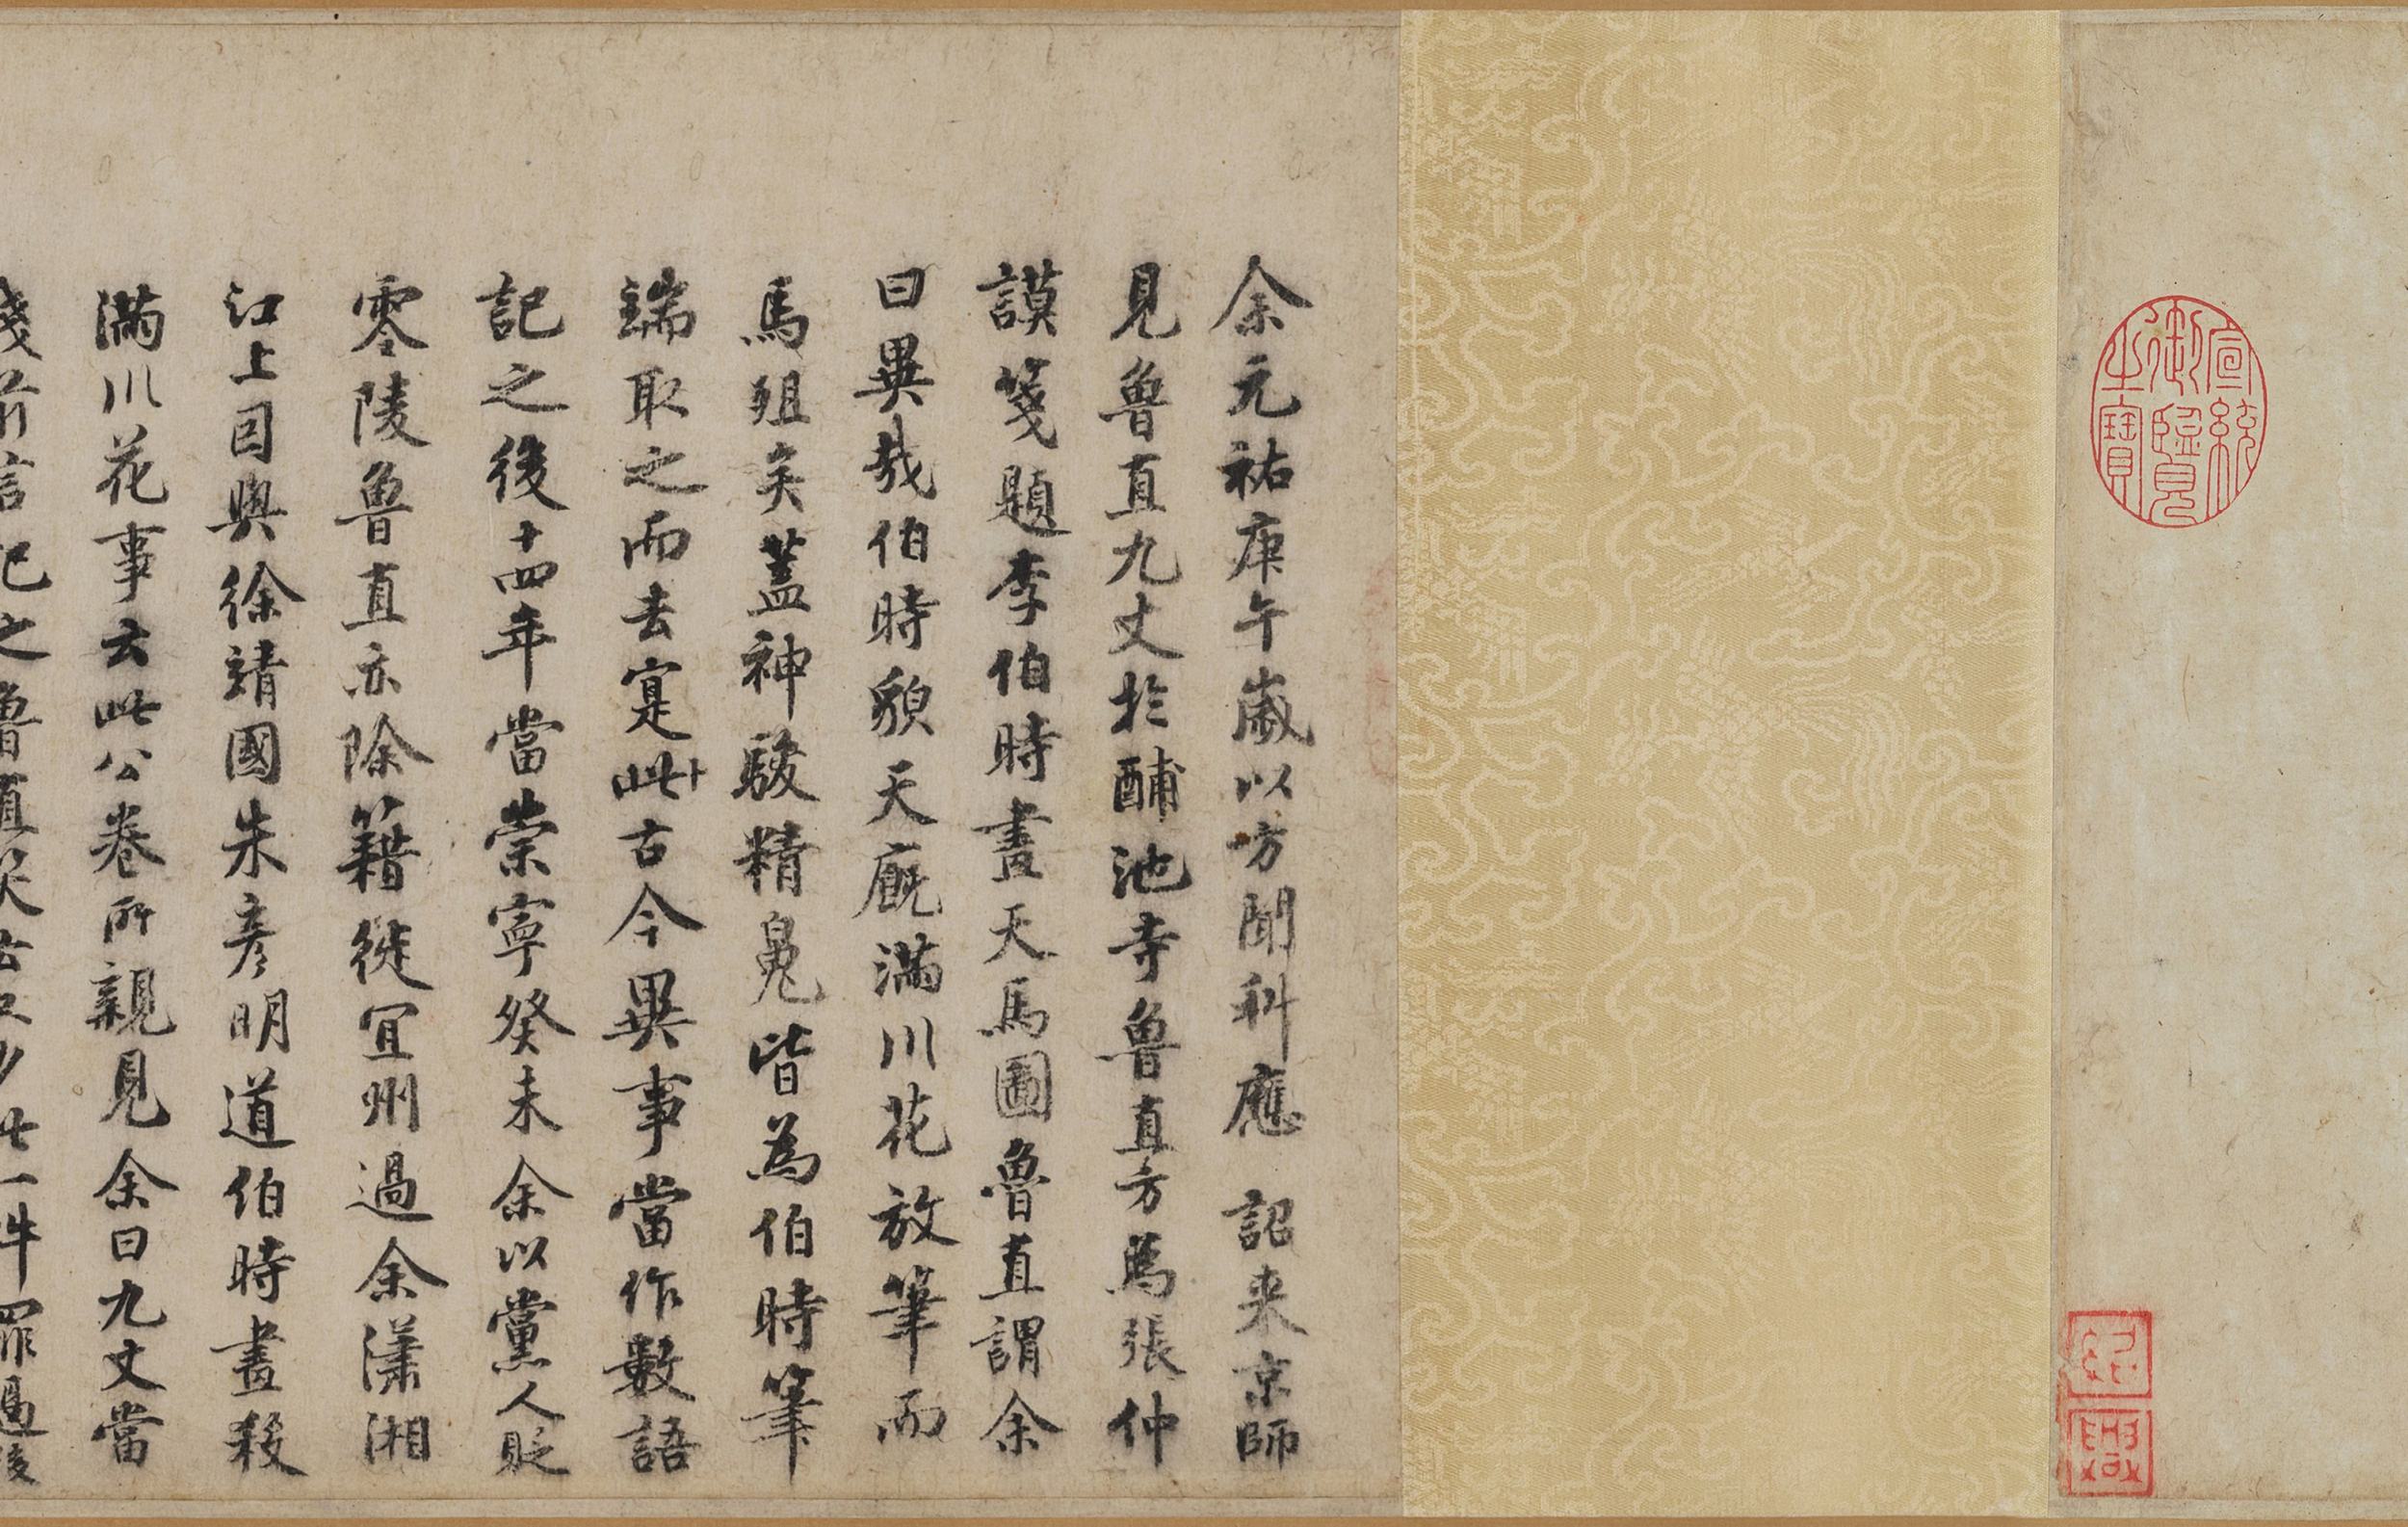 宣統
御覽
之寶
紹
興
余元祐庚午嵗以方聞科應 詔来京師
見魯直九丈於酺池寺魯直方為張仲
謨箋題李伯時畫天馬圖魯直謂余
曰異哉伯時貌天廐滿川花放筆而
馬殂矣蓋神駿精魄皆為伯時筆
端取之而去寔此古今異事當作數語
記之後十四年當崇寧癸未余以黨人貶
零陵魯直亦除籍徙宜州過余瀟湘
江上因與徐靖國朱彦明道伯時畫殺
滿川花事云此公卷所親見余曰九丈當
踐前言記之魯直笑云只少此一件罪過後